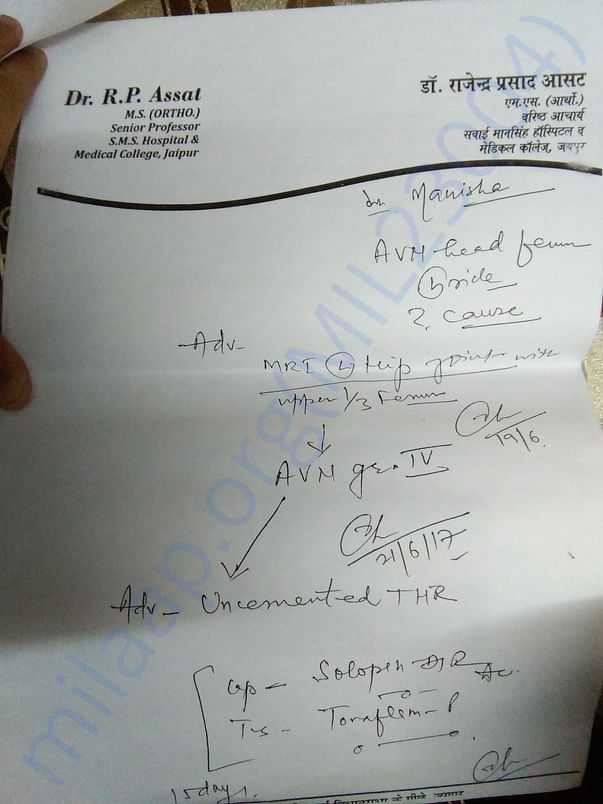 Dr. R.P. Assat
M.S. (ORTHO.)
Senior Professor
S.M.S. Hospital &
Medical College, Jaipur
डॉ. राजेन्द्र प्रसाद आसट
एम.एस. (आर्थो.)
वरिष्ठ आचार्य
सवाई मानसिंह हॉस्पिटल व
मेडिकल कॉलेज, जयपुर
Manisha
AVN head femur
side
? cause
Adv
MRI Hip joint with
upper 1/3 Femur
19/6
AVN gr. IV
21/6/17
Adv - Uncemented THR
Cap - Solopen DSR
Tab - Toraflem-P
15 days.
milaap.org(MIL23004)